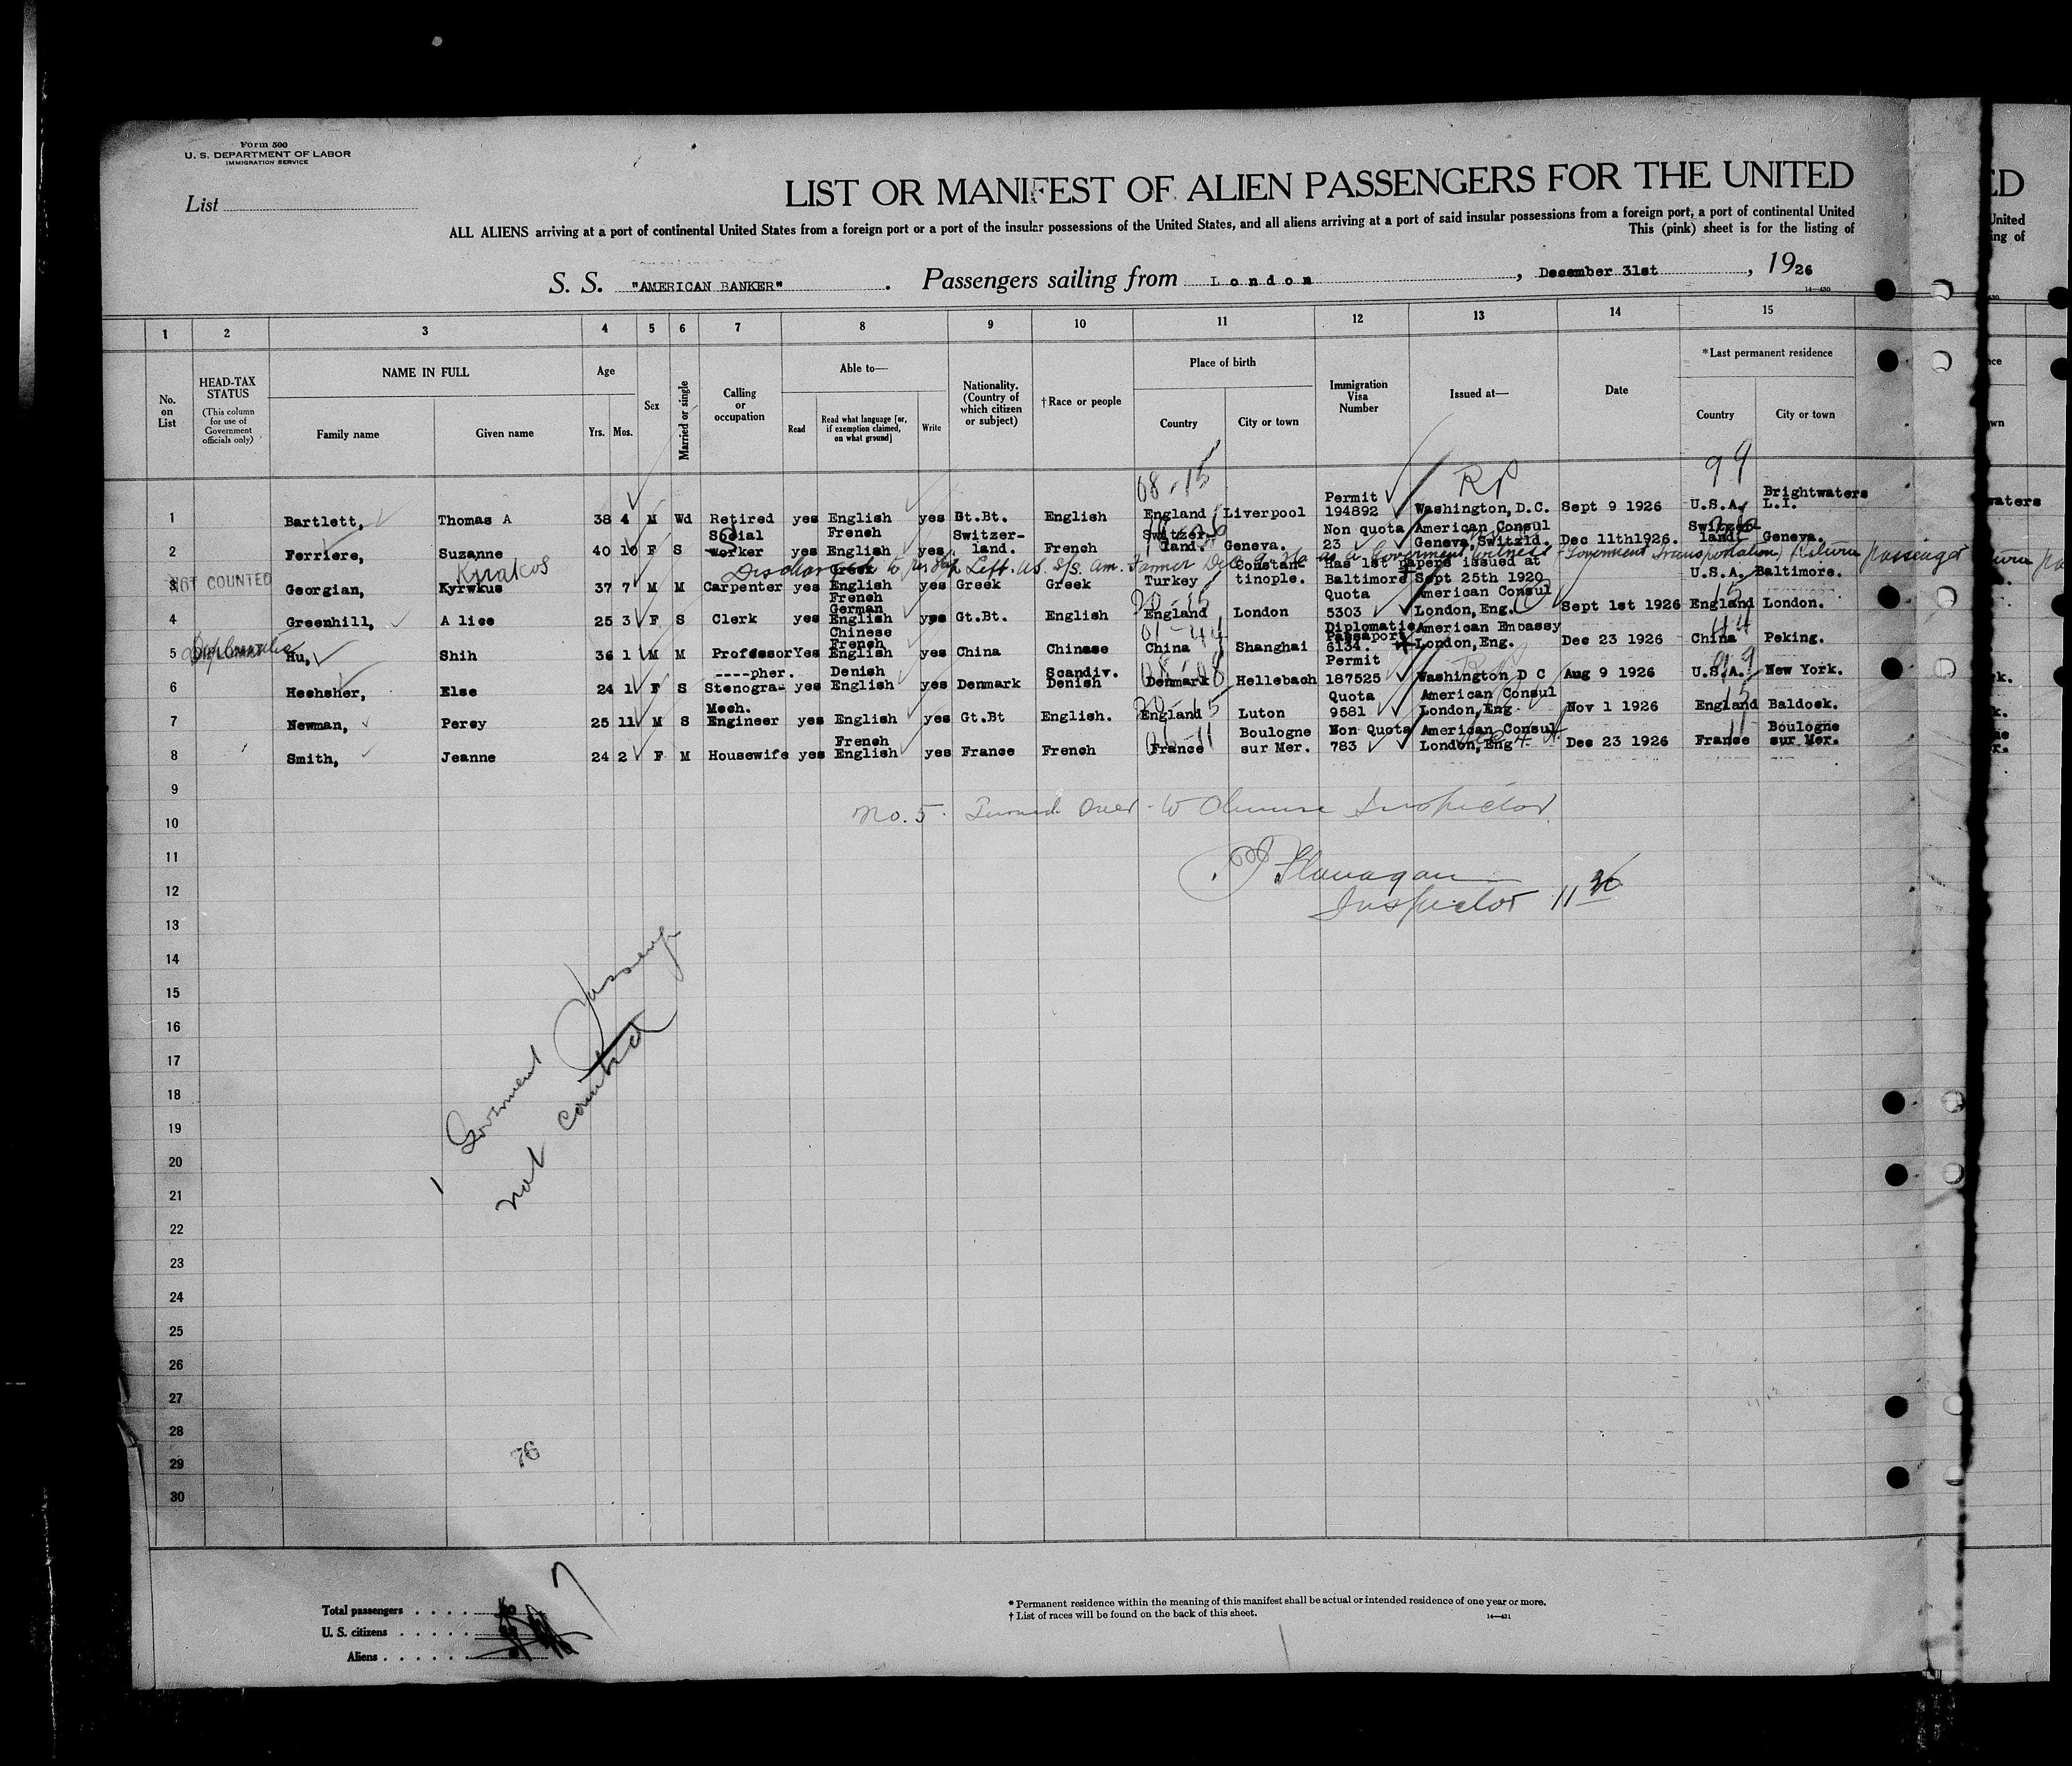 Form 500
U. S. DEPARTMENT OF LABOR
IMMIGRATION SERVICE
List
LIST OR MANIFEST OF ALIEN PASSENGERS FOR THE UNITED
ALL ALIENS arriving at a port of continental United States from a foreign port or a port of the insular possessions of the United States, and all aliens arriving at a port of said insular possessions from a foreign port, a port of continental United
This (pink) sheet is for the listing of
S. S. "AMERICAN BANKER". Passengers sailing from London, December 31st, 1926
14—430
1 2 3 4 5 6 7 8 9 10 11 12 13 14 15
No. on List
HEAD-TAX STATUS (This column for use of Government officials only)
NAME IN FULL
Family name Given name
Age
Yrs. Mos.
Sex
Married or single
Calling or occupation
Able to—
Read Read what language [or, if exemption claimed, on what ground] Write
Nationality. (Country of which citizen or subject)
†Race or people
Place of birth
Country City or town
Immigration Visa Number
Issued at—
Date
*Last permanent residence
Country City or town
08-15 RP 99
1 Bartlett, Thomas A 38 4 M Wd Retired yes English yes Gt.Bt. English England Liverpool Permit 194892 Washington, D.C. Sept 9 1926 U.S.A. Brightwaters L.I.
2 Ferriere, Suzanne 40 10 F S Social worker yes French English yes Switzer-land. French Switzer-land. Geneva. Non quota 23 American Consul Geneva, Switzld. Dec 11th1926. Switzerland Geneva.
Kyriakos
Discharged Left. U.S. S/S. Am. Farmer Dec as a Government witness - Government Transportation) (Return passenger
NOT COUNTED
3 Georgian, Kyrwkus 37 7 M M Carpenter yes Greek English yes Greek Greek Turkey Constantinople. Has 1st papers issued at Baltimore Sept 25th 1920 U.S.A. Baltimore.
4 Greenhill, A lice 25 3 F S Clerk yes French German English yes Gt.Bt. English England London Quota 5303 American Consul London, Eng. Sept 1st 1926 England London.
Diplomatic
5 Hu, Shih 36 1 M M Professor Yes Chinese French English yes China Chinese China Shanghai Diplomatic Passport 6134. American Embassy London, Eng. Dec 23 1926 China Peking.
6 Hechsher, Else 24 1 F S Stenogra- ----pher. yes Denish English yes Denmark Scandiv. Denish Denmark Hellebach Permit 187525 Washington D C Aug 9 1926 U.S.A. New York.
7 Newman, Percy 25 11 M S Mech. Engineer yes English yes Gt.Bt English. England Luton Quota 9581 American Consul London, Eng Nov 1 1926 England Baldock.
8 Smith, Jeanne 24 2 F M Housewife yes French English yes France French France Boulogne sur Mer. Non Quota 783 American Consul London, Eng Dec 23 1926 France Boulogne sur Mer.
9
no. 5. Turned Over to Chinese Inspector.
10
11
Flanagan
12
Inspector
13
14
15
16
17
18
19
20
21
22
23
24
25
26
27
28
29
30
1 Government Passenger
not counted
76
Total passengers
U. S. citizens
Aliens
* Permanent residence within the meaning of this manifest shall be actual or intended residence of one year or more.
† List of races will be found on the back of this sheet.
14—431